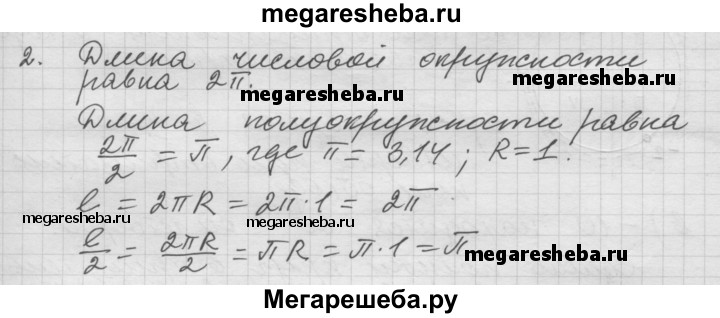 megaresheba.ru
2. Длина числовой окружности
равна 2π.
megaresheba.ru
megaresheba.ru
Длина полуокружности равна
2π/2 = π, где π = 3,14; R = 1.
l = 2πR = 2π·1 = 2π
megaresheba.ru
megaresheba.ru
l/2 = 2πR/2 = πR = π·1 = π
megaresheba.ru
Мегарешеба.ру